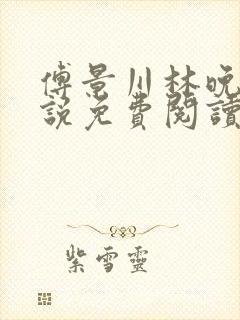 傅景川林晚
說免費閱讀
紫雪靈